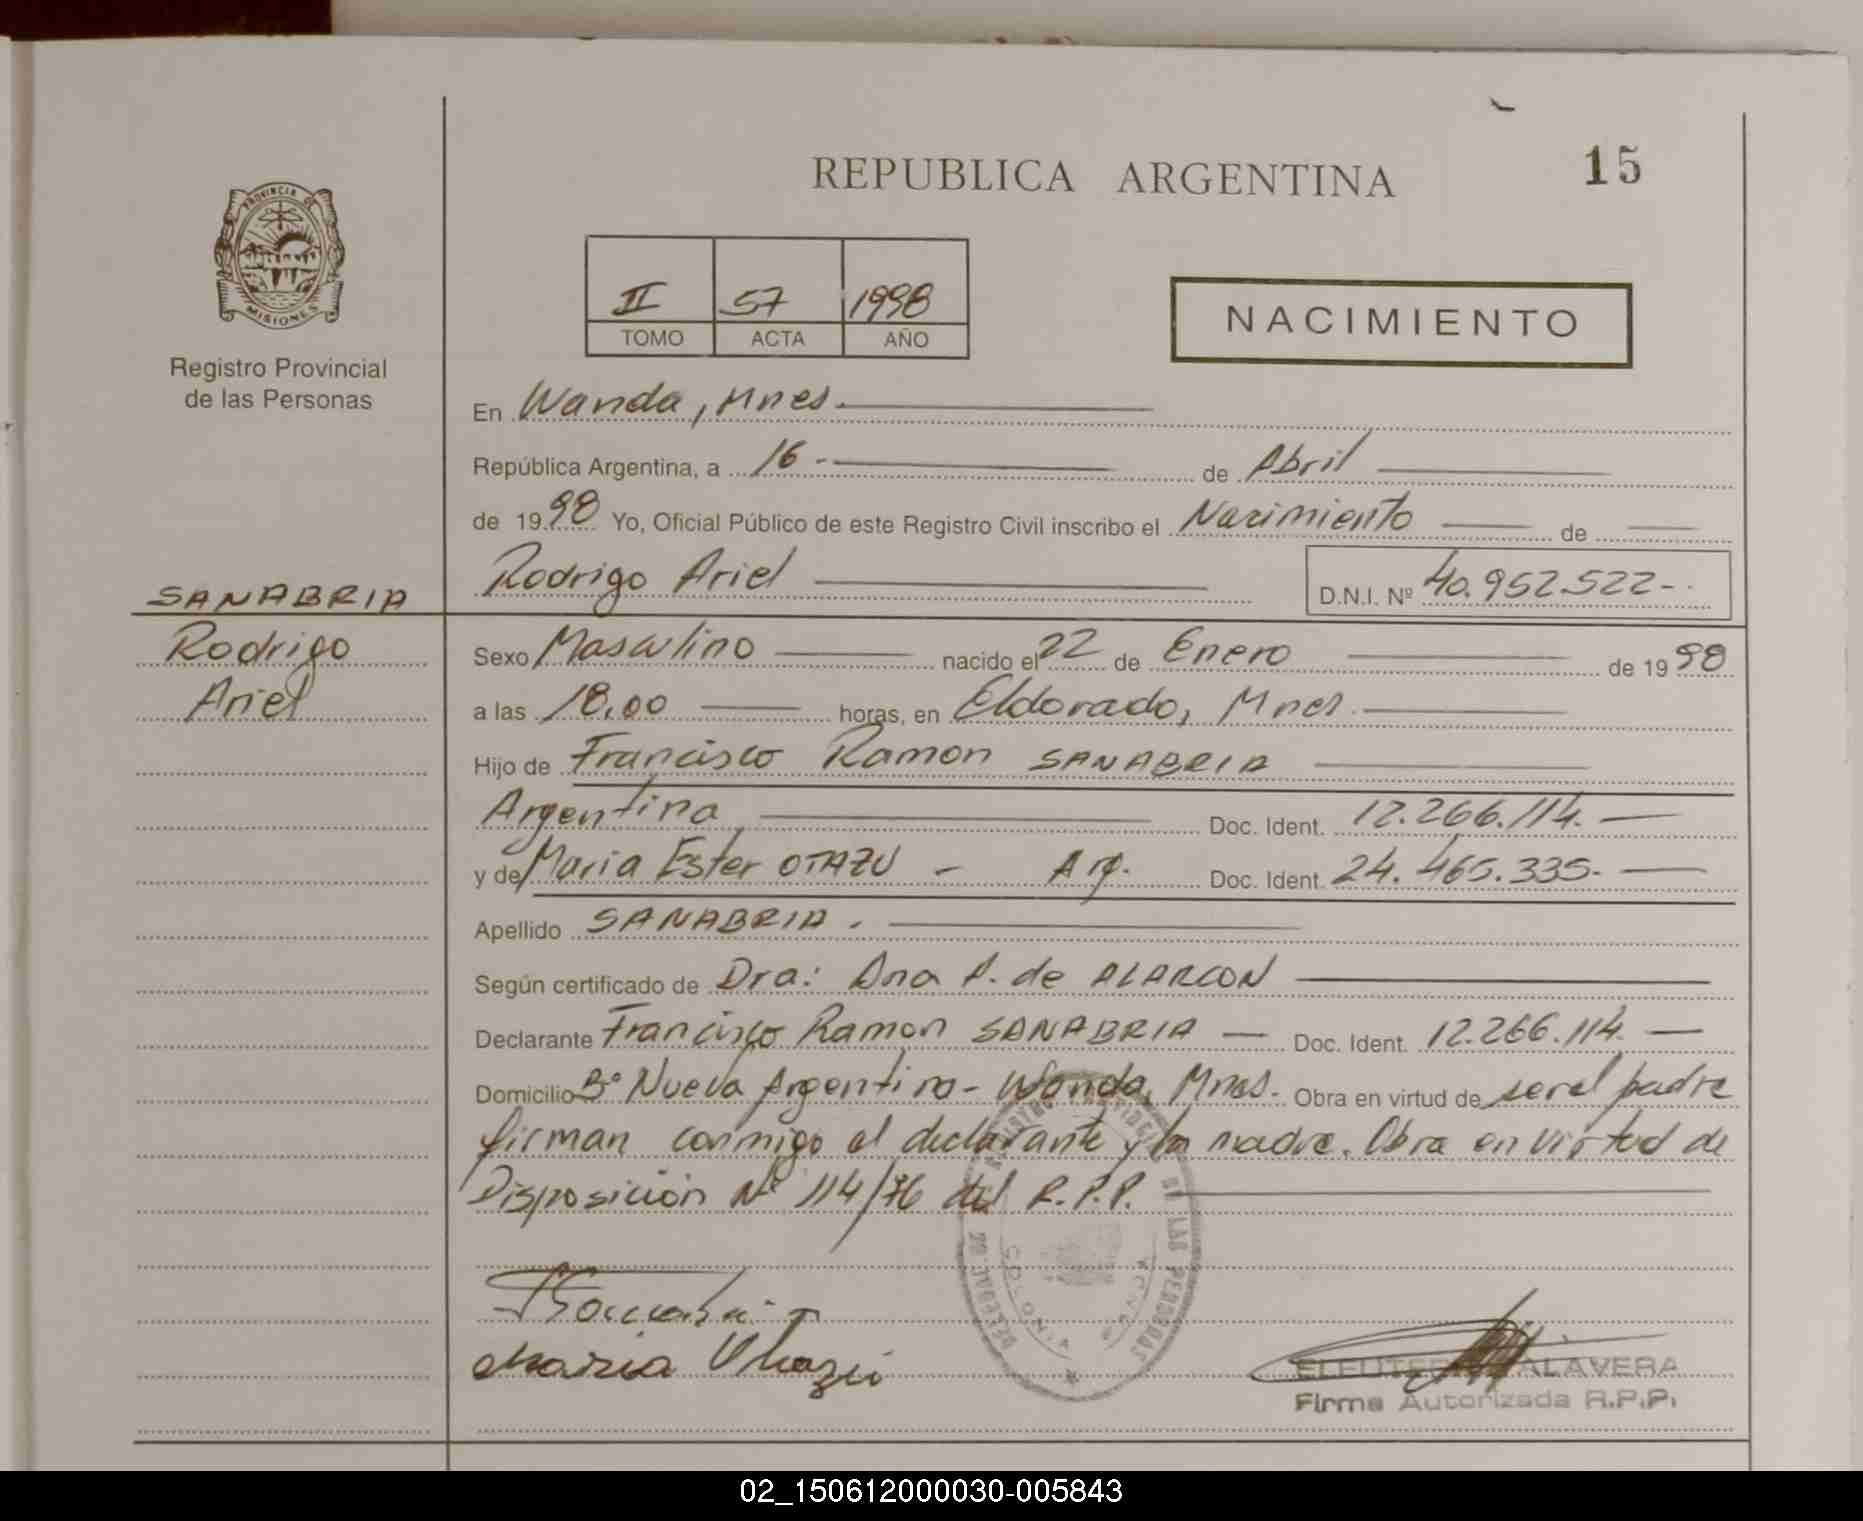 REPUBLICA ARGENTINA
15
PROVINCIA DE
MISIONES
Registro Provincial
de las Personas
II 57 1998
TOMO ACTA AÑO
NACIMIENTO
En Wanda, Mnes.
República Argentina, a 16.- de Abril
de 1998 Yo, Oficial Público de este Registro Civil inscribo el Nacimiento de
Rodrigo Ariel D.N.I. Nº 40.952.522-.
SANABRIA
Rodrigo
Ariel
Sexo Masculino nacido el 22 de Enero de 1998
a las 18,00 horas, en Eldorado, Mnes.
Hijo de Francisco Ramon SANABRIA
Argentina Doc. Ident. 12.266.114.
y de Maria Ester OTAZU - Arg. Doc. Ident. 24.465.335.
Apellido SANABRIA.
Según certificado de Dra: Ana A. de ALARCON
Declarante Francisco Ramon SANABRIA - Doc. Ident. 12.266.114.
Domicilio Bº Nueva Argentina - Wanda, Mnes. Obra en virtud de ser el padre
firman conmigo el declarante y la madre. Obra en virtud de
Disposición Nº 114/76 del R.P.P.
DE LAS PERSONAS
COLONIA WANDA
Maria Otazú
ELEUTERIO TALAVERA
Firma Autorizada R.P.P.
02_150612000030-005843